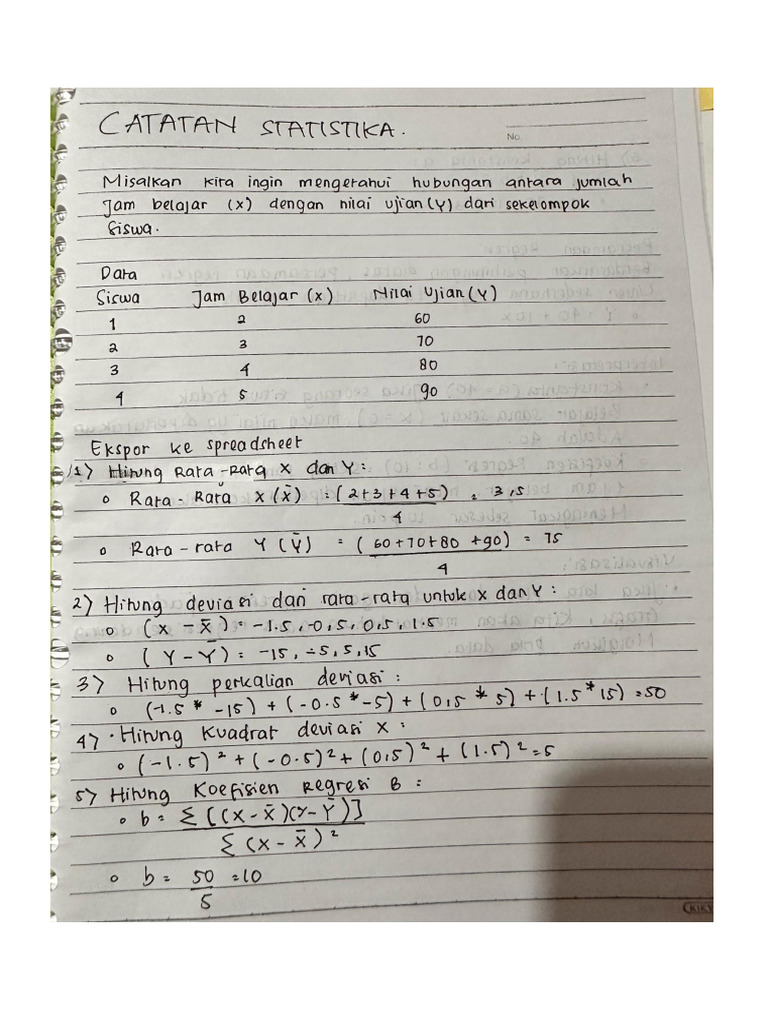 CATATAN STATISTIKA.
No.
Misalkan kita ingin mengetahui hubungan antara jumlah
Jam belajar (x) dengan nilai ujian (Y) dari sekelompok
Siswa.
Data
Siswa Jam Belajar (x) Nilai Ujian (Y)
1 2 60
2 3 70
3 4 80
4 5 90
Ekspor ke spreadsheet
1) Hitung Rata-Rata X dan Y:
o Rata-Rata X (X̄) = (2+3+4+5) = 3,5
4
o Rata-rata Y (Ȳ) = (60+70+80+90) = 75
4
2) Hitung deviasi dari rata-rata untuk x dan Y:
o (x - X̄) = -1.5, -0,5, 0,5, 1.5
o (Y - Ȳ) = -15, -5, 5, 15
3) Hitung perkalian deviasi:
o (-1.5 * -15) + (-0.5 * -5) + (0,5 * 5) + (1.5 * 15) = 50
4) Hitung Kuadrat deviasi X:
o (-1.5)² + (-0.5)² + (0,5)² + (1.5)² = 5
5) Hitung Koefisien Regresi B:
o b = Σ [(X - X̄)(Y - Ȳ)]
Σ (X - X̄)²
o b = 50 = 10
5